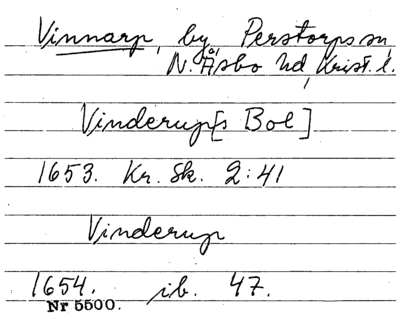 Vinnarp, by, Perstorps sn,
N. Åsbo hd, Krist. l.
Vinderup[s Bol]
1653. Kr. Sk. 2:41
Vinderup
1654. ib. 47.
Nr 5500.